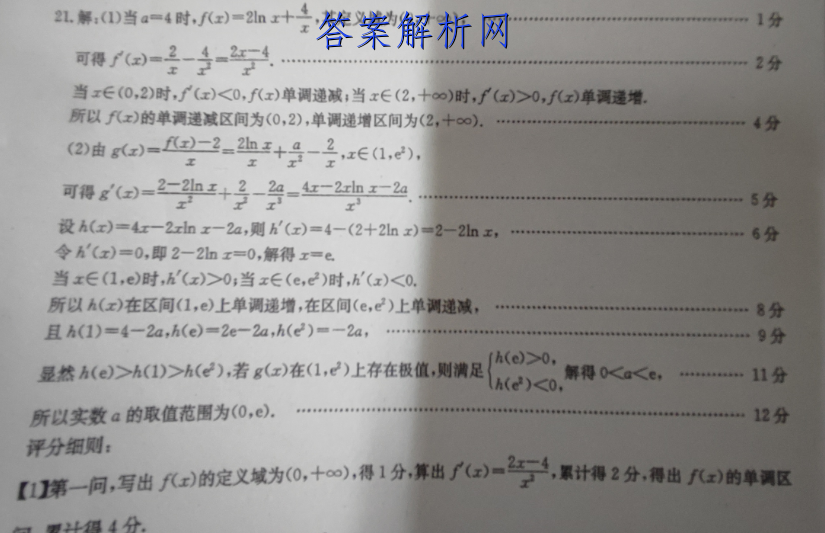 21.解:(1)当a=4时,f(x)=2ln x+4/x,其定义域为 ……1分
答案解析网
可得f′(x)=2/x-4/x²=(2x-4)/x². ……2分
当x∈(0,2)时,f′(x)<0,f(x)单调递减;当x∈(2,+∞)时,f′(x)>0,f(x)单调递增.
所以f(x)的单调递减区间为(0,2),单调递增区间为(2,+∞). ……4分
(2)由g(x)=(f(x)-2)/x=2ln x/x+a/x²-2/x,x∈(1,e²),
可得g′(x)=(2-2ln x)/x²+2/x²-2a/x³=(4x-2xln x-2a)/x³. ……5分
设h(x)=4x-2xln x-2a,则h′(x)=4-(2+2ln x)=2-2ln x, ……6分
令h′(x)=0,即2-2ln x=0,解得x=e.
当x∈(1,e)时,h′(x)>0;当x∈(e,e²)时,h′(x)<0.
所以h(x)在区间(1,e)上单调递增,在区间(e,e²)上单调递减, ……8分
且h(1)=4-2a,h(e)=2e-2a,h(e²)=-2a, ……9分
显然h(e)>h(1)>h(e²),若g(x)在(1,e²)上存在极值,则满足{h(e)>0, h(e²)<0, 解得0<a<e, ……11分
所以实数a的取值范围为(0,e). ……12分
评分细则:
【1】第一问,写出f(x)的定义域为(0,+∞),得1分,算出f′(x)=(2x-4)/x²,累计得2分,得出f(x)的单调区
间,累计得4分.